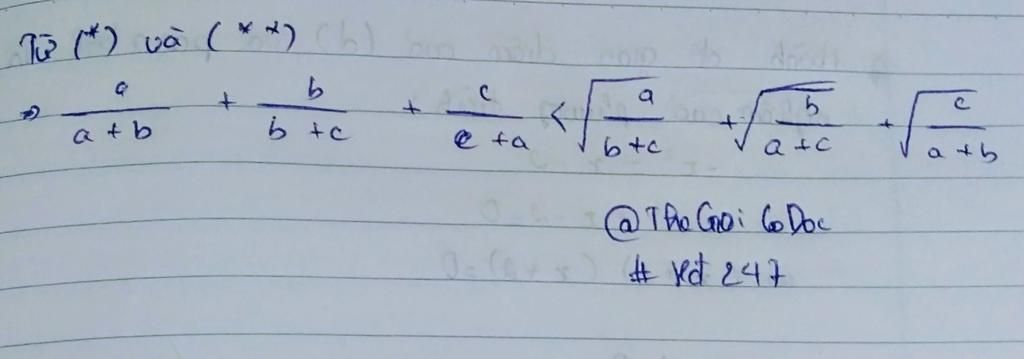 Từ (*) và (**)
⇒ a/(a+b) + b/(b+c) + c/(c+a) < √(a/(b+c)) + √(b/(a+c)) + √(c/(a+b))
@TheGioiCoDoc
# Kđ 247